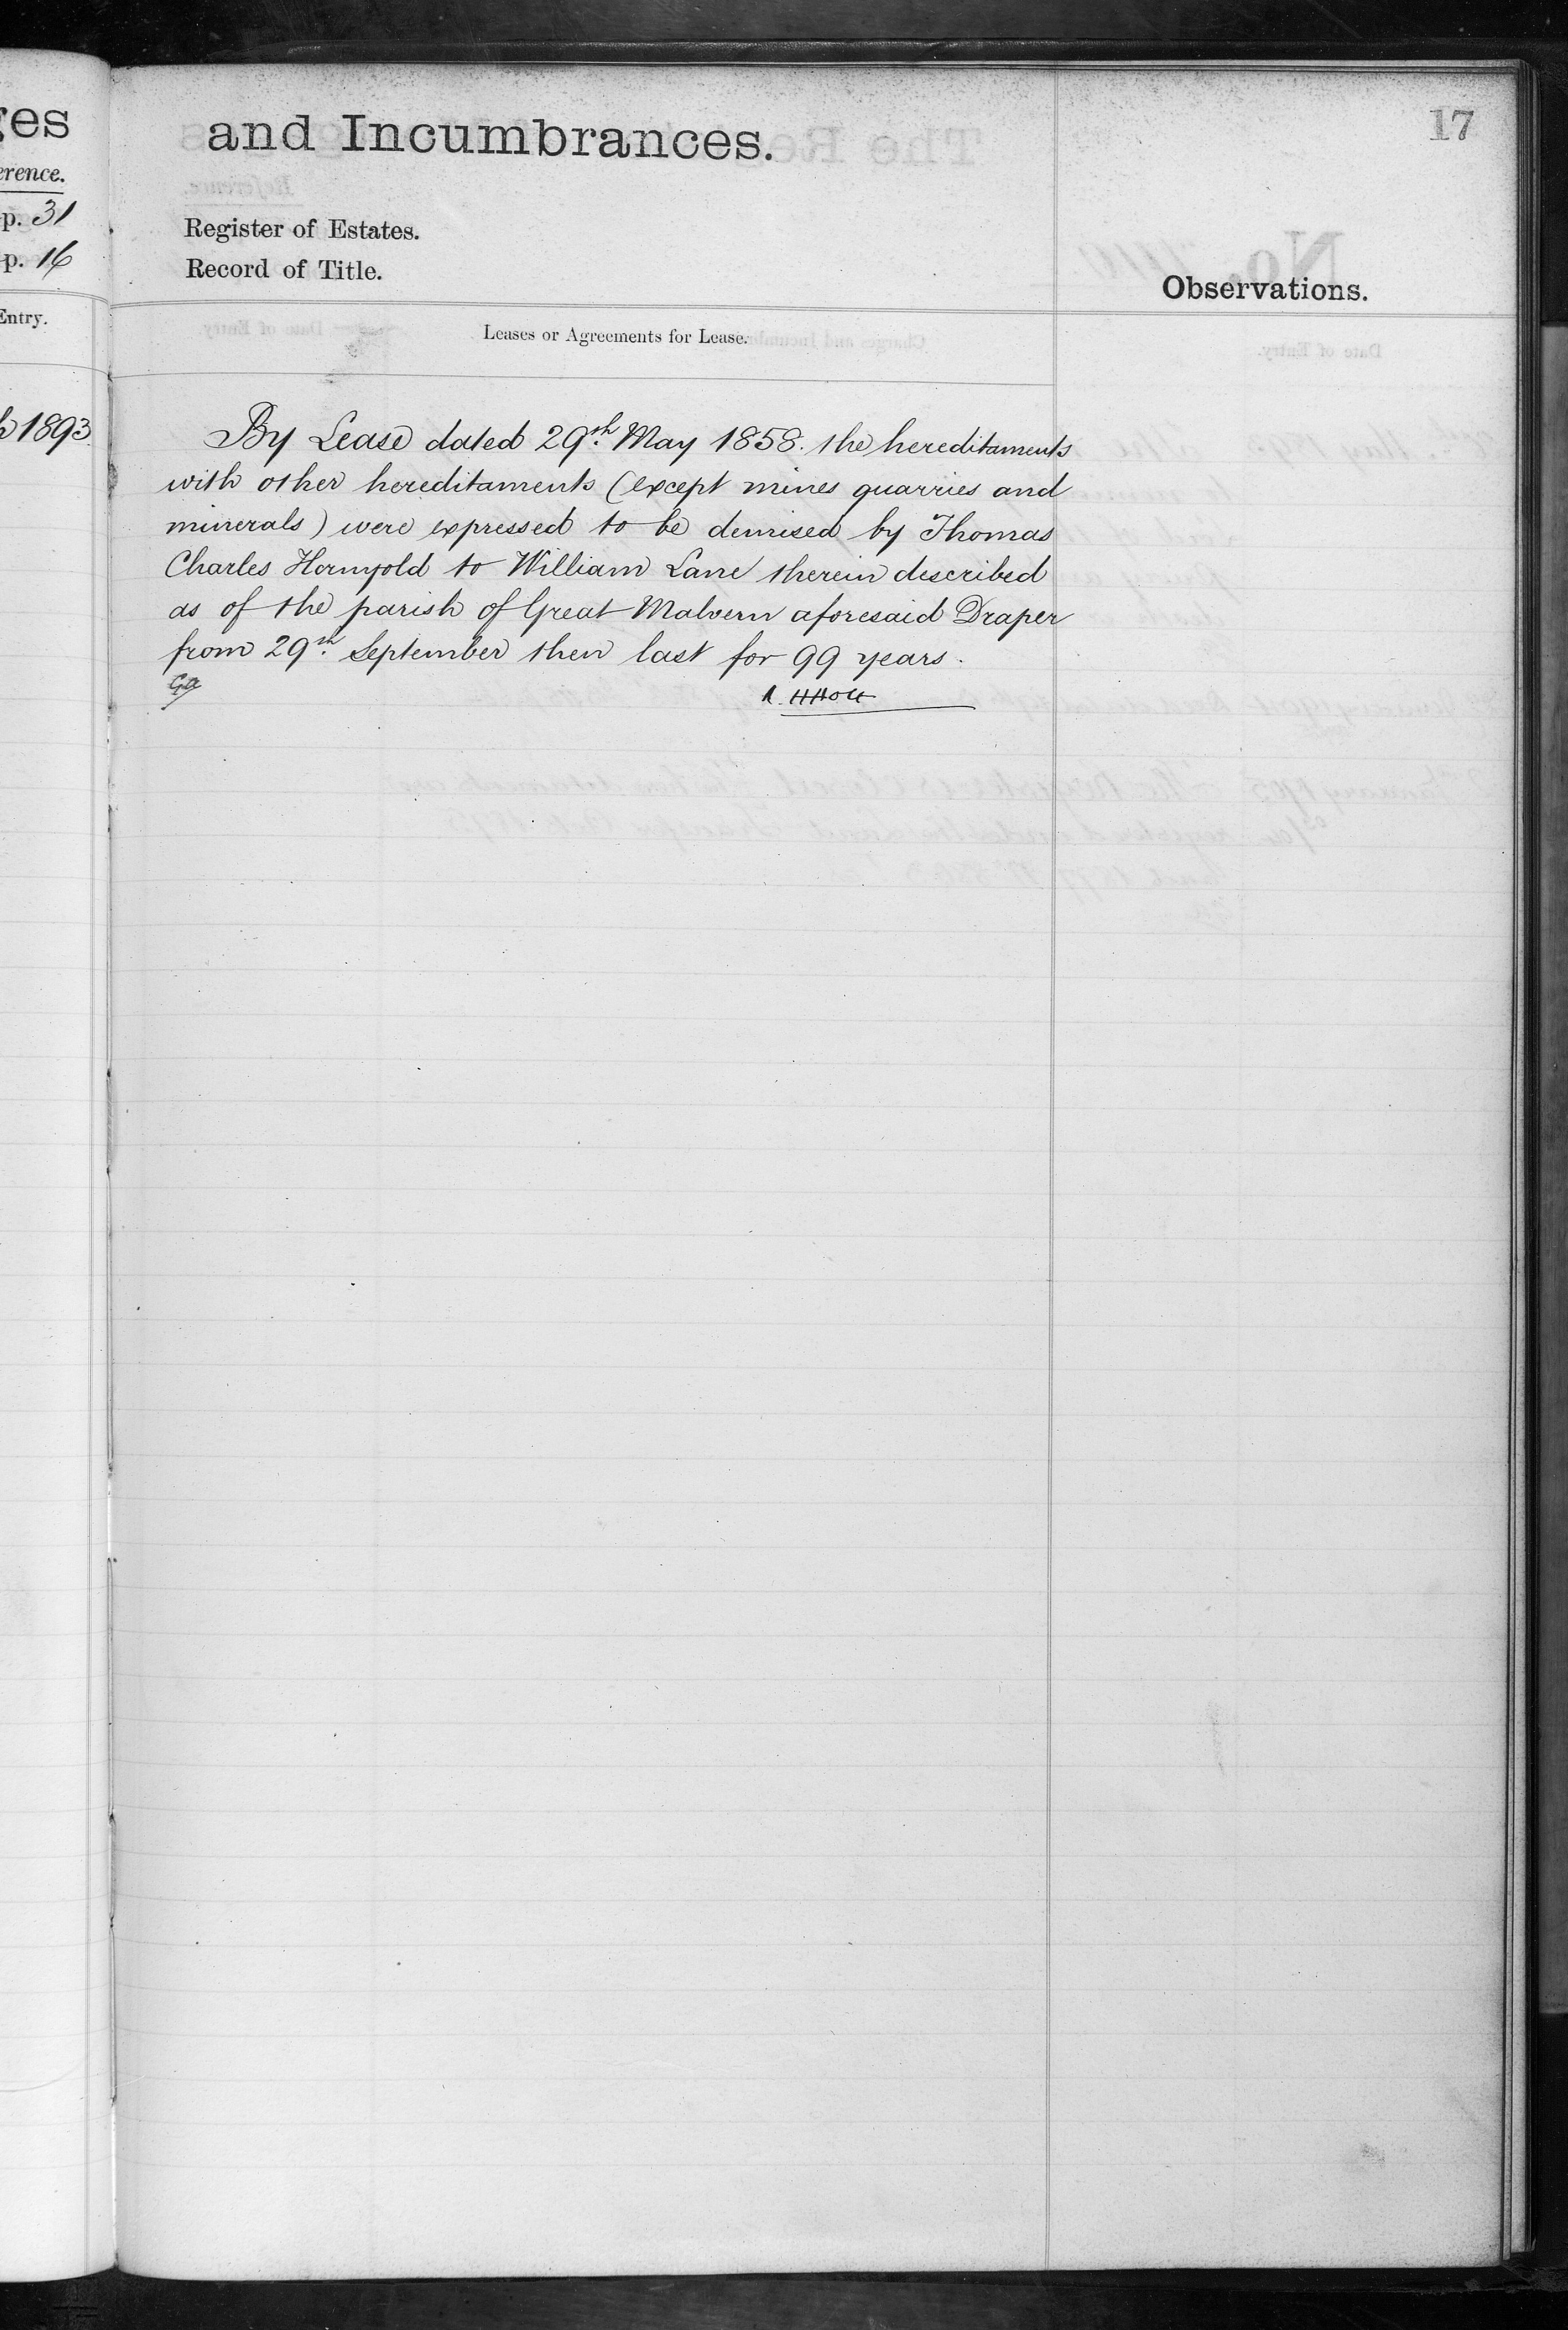 and Incumbrances.
17
erence.
p. 31
p. 16
Entry.
1893
Register of Estates.
Record of Title.
Observations.
Leases or Agreements for Lease.
By Lease dated 29th May 1858. the hereditaments
with other hereditaments (except mines quarries and
minerals) were expressed to be demised by Thomas
Charles Hornyold to William Lane therein described
as of the parish of Great Malvern aforesaid Draper
from 29th September then last for 99 years.